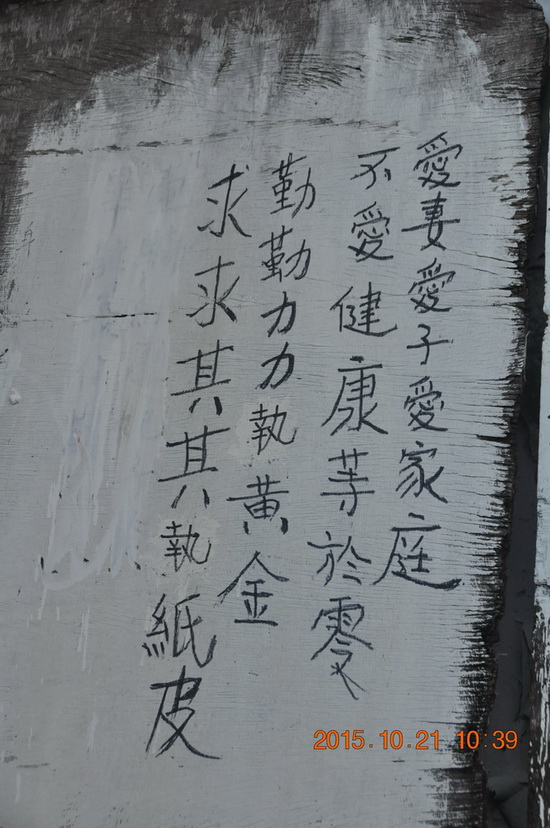 愛妻愛子愛家庭
不愛健康等於零
勤勤力力執黃金
求求其其執紙皮
2015.10.21 10:39